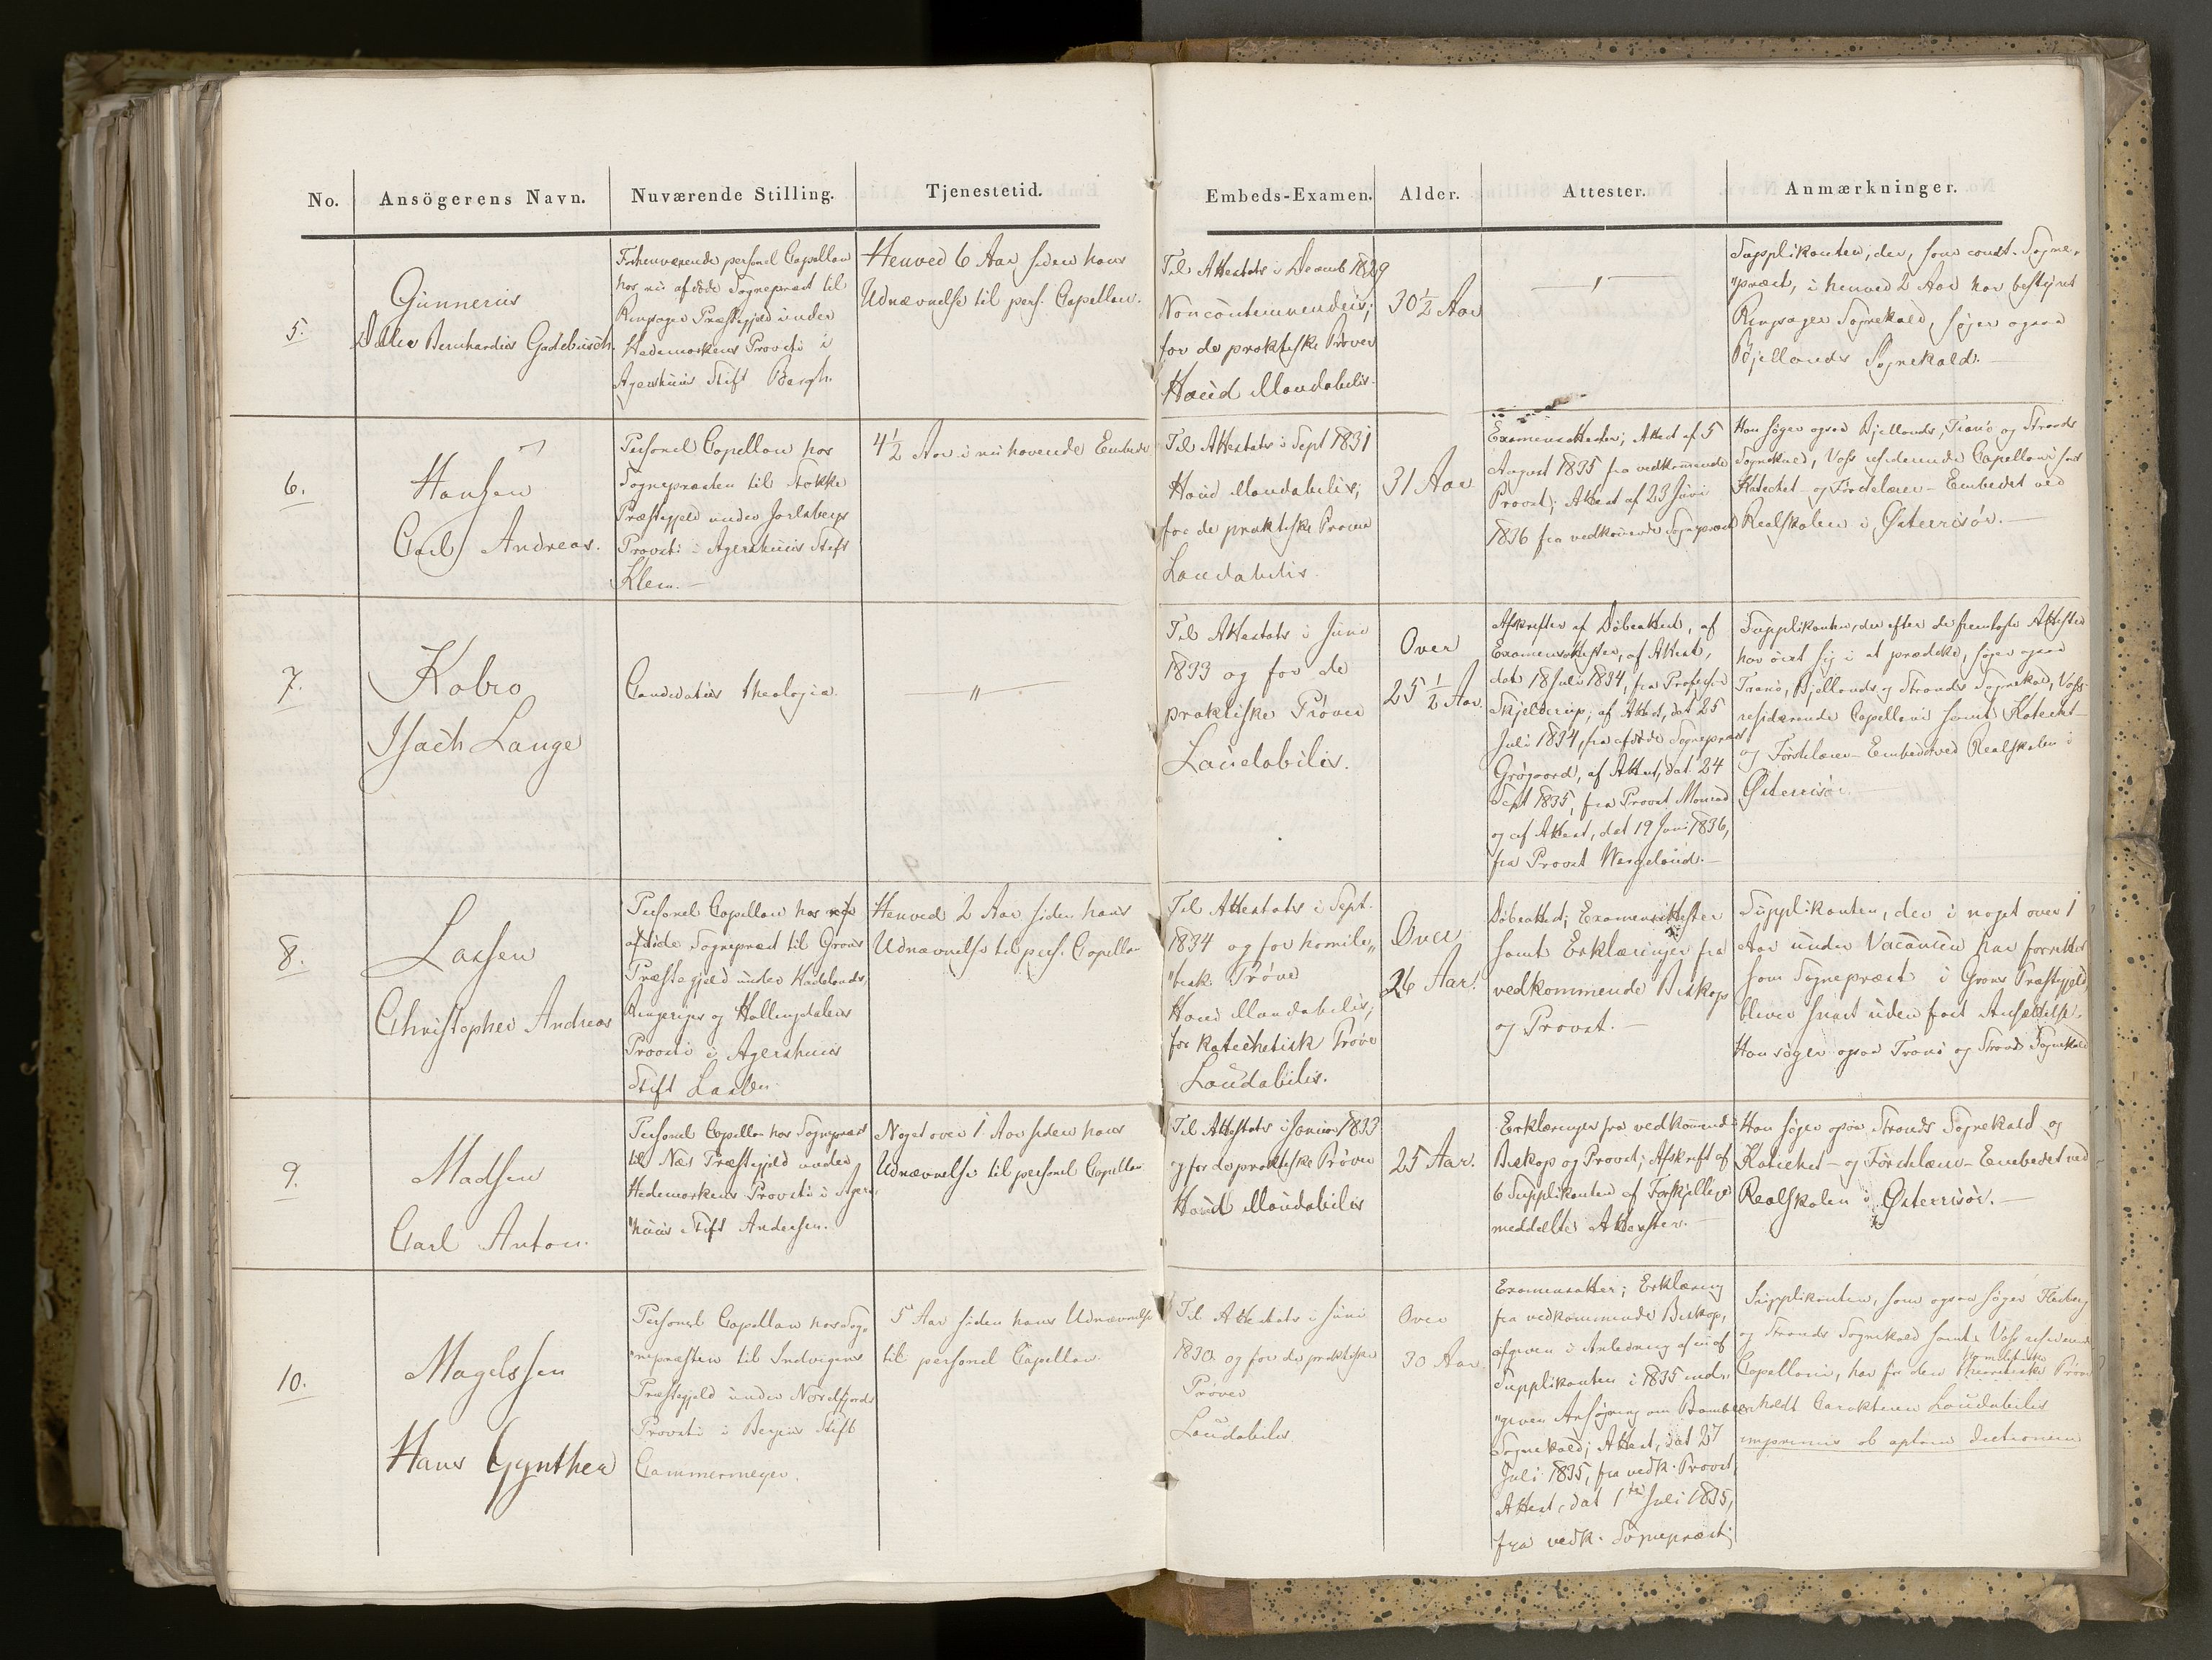 No.
Ansögerens Navn.
Nuværende Stilling.
Tjenestetid.
Embeds-Examen.
Alder.
Attester.
Anmærkninger.
5.
Gunnerus
Bernhardus Gadebusch
Forhenværende personel Capellan
hos nu afdöde Sognepræst til
Ringsager Præstegjeld under
Hedemarkens Provsti i
Agershuus Stift Bergh.
Henved 6 Aar siden hans
Udnævnelse til pers. Capellan.
Til Attestats i Decemb 1829
Noncontemnendus;
for de praktiske Prøver
Haud illaudabilis.
30½ Aar
"
Supplikanten, der, som const. Sogne-
"præst, i henved 2 Aar har bestyret
Ringsager Sognekald, søger ogsaa
Bjellands Sognekald.
6.
Hansen
Carl Andreas.
Personel Capellan hos
Sognepræsten til Stokke
Præstegjeld under Jarlsbergs
Provsti i Agershuus Stift
Klem.
4½ Aar i nu havende Embede
Til Attestats i Sept 1831
Haud illaudabilis;
for de praktiske Prøver
Laudabilis.
31 Aar
Examensattester; Attest af 5
August 1835 fra vedkommende
Provst; Attest af 23 Juni
1836 fra vedkommende Sognepræst
Han søger ogsaa Bjellands, Tranø og Strands
Sognekald, Voss residerende Capellani samt
Katechet- og Førstelærer-Embedet ved
Realskolen i Østerrisör.
7.
Kobro
Isach Lange
Candidatus theologiæ.
"
Til Attestats i Juni
1833 og for de
praktiske Prøver
Laudabilis.
Over
25½ Aar.
Afskrifter af Döbeattest, af
Examensattester, af Attest,
dat 18 Juli 1834, fra Professor
Skjelderup; af Attest, dat 25
Juli 1834, fra afdöde Sognepræst
Grøgaard, af Attest, dat 24
Sept 1835, fra Provst Monrad
og af Attest, dat 19 Juni 1836,
fra Provst Wergeland.
Supplikanten, der efter de fremlagte Attester
har øvet sig i at prædike, søger ogsaa
Tranø, Bjellands og Strands Sognekald, Voss
residerende Capellani samt Katechet-
og Førstelærer-Embedet ved Realskolen i
Østerrisör.
8.
Lassen
Christopher Andreas
Personel Capellan hos
afdöde Sognepræst til Grans
Præstegjeld under Hadelands,
Ringeriges og Hallingdalens
Provsti i Agershuus
Stift
Henved 2 Aar siden hans
Udnævnelse til pers. Capellan
Til Attestats i Sept.
1834 og for homile"
"tisk Prøve
Haud illaudabilis;
for Katechetisk Prøve
Laudabilis.
Over
26 Aar.
Döbeattest; Examensattester
samt Erklæringer fra
vedkommende Biskop
og Provst.
Supplikanten, der i noget over 1
Aar under Vacancen har forrettet
som Sognepræst i Grans Præstegjeld,
bliver snart uden fast Ansættelse.
Han søger ogsaa Tranø og Strands Sognekald
9.
Madsen
Carl Anton.
Personel Capellan hos Sognepræst
til Næs Præstegjeld under
Hedemarkens Provsti i Agers
"huus Stift Andersen.
Noget over 1 Aar siden hans
Udnævnelse til personel Capellan
Til Attestats i Januar 1833
og for de praktiske Prøver
Haud illaudabilis
25 Aar.
Erklæringer fra vedkommende
Biskop og Provst; Afskrift af
6 Supplikanten af Forskjellige
meddeelte Attester.
Han søger ogsaa Strands Sognekald og
Katechet- og Førstelærer-Embedet ved
Realskolen i Østerrisör.
10.
Magelssen
Hans Gynther
Personel Capellan hos Sog-
"nepræsten til Indvigens
Præstegjeld under Nordfjords
Provsti i Bergens Stift
Cammermeyer.
5 Aar siden hans Udnævnelse
til personel Capellan
Til Attestats i Juni
1830 og for de praktiske
Prøver
Laudabilis
Over
30 Aar.
Examensatter; Erklæring
fra vedkommende Biskop,
afgiven i Anledning af en af
Supplikanten i 1835 ind-
"given Ansøgning om Bamble
Sognekald; Attest, dat 27
Juli 1835, fra vedk. Provst,
Attest, dat 1ste Juli 1835,
fra vedk. Sognepræst;
Supplikanten, som ogsaa søger
og Strands Sognekald samt Voss residerende
Capellani, har for den homiletiske Prøve
erholdt Carakteren Laudabilis
imprimis ob aptam dictionem